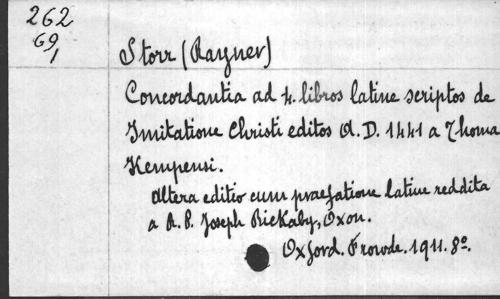 262
69,
1
Storr (Rayner)
Concordantia ad 4. libros latine scriptos de
Imitatione Christi editos A.D. 1441 a Thoma
Kempensi.
Altera editio cum praefatione latine reddita
a R. P. Joseph Rickaby, Oxon.
Oxford. Frowde. 1911. 8°.